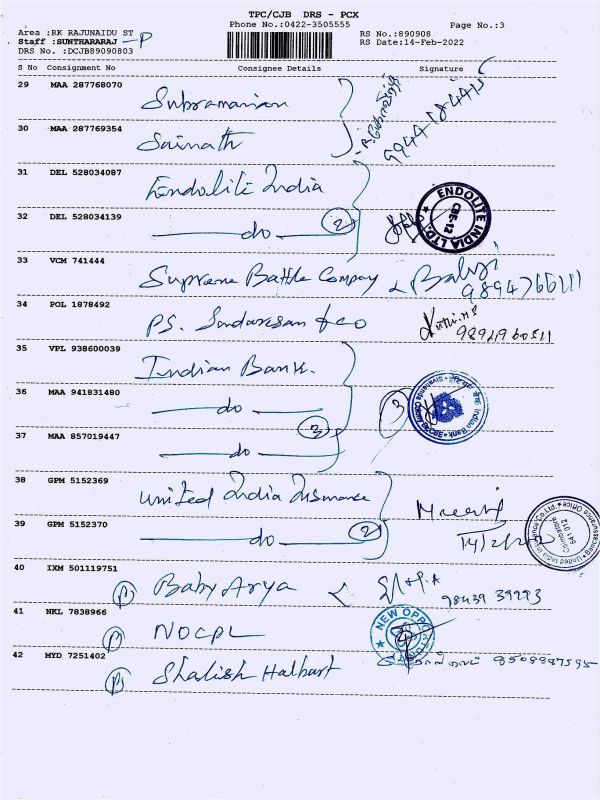 TPC/CJB DRS - PCX
Phone No.:0422-3505555
Page No.:3
Area :RK RAJUNAIDU ST
RS No.:890908
Staff :SUNTHARARAJ - P
RS Date:14-Feb-2022
DRS No. :DCJB89090803
S No Consignment No Consignee Details Signature
29 MAA 287768070 Subramanian
30 MAA 287769354 Sainath
31 DEL 528034087 Endolite India
32 DEL 528034139 do 2
ENDOLITE INDIA LTD. CBE-12
33 VCM 741444 Supreme Battle Company Balaji
9894766111
34 POL 1878492 PS. Sundaresan & co
35 VPL 938600039 Indian Bank.
36 MAA 941831480 do 3
Indian Bank
37 MAA 857019447 do 3
38 GPM 5152369 United India Insurance
39 GPM 5152370 do 2
United India Insurance Co Ltd. Coimbatore 641 012
40 IXM 501119751 P Baby Arya
98439 39993
41 NKL 7838966 P NOCPL
NEW OPP
42 MYD 7251402 P Shalish Halbart